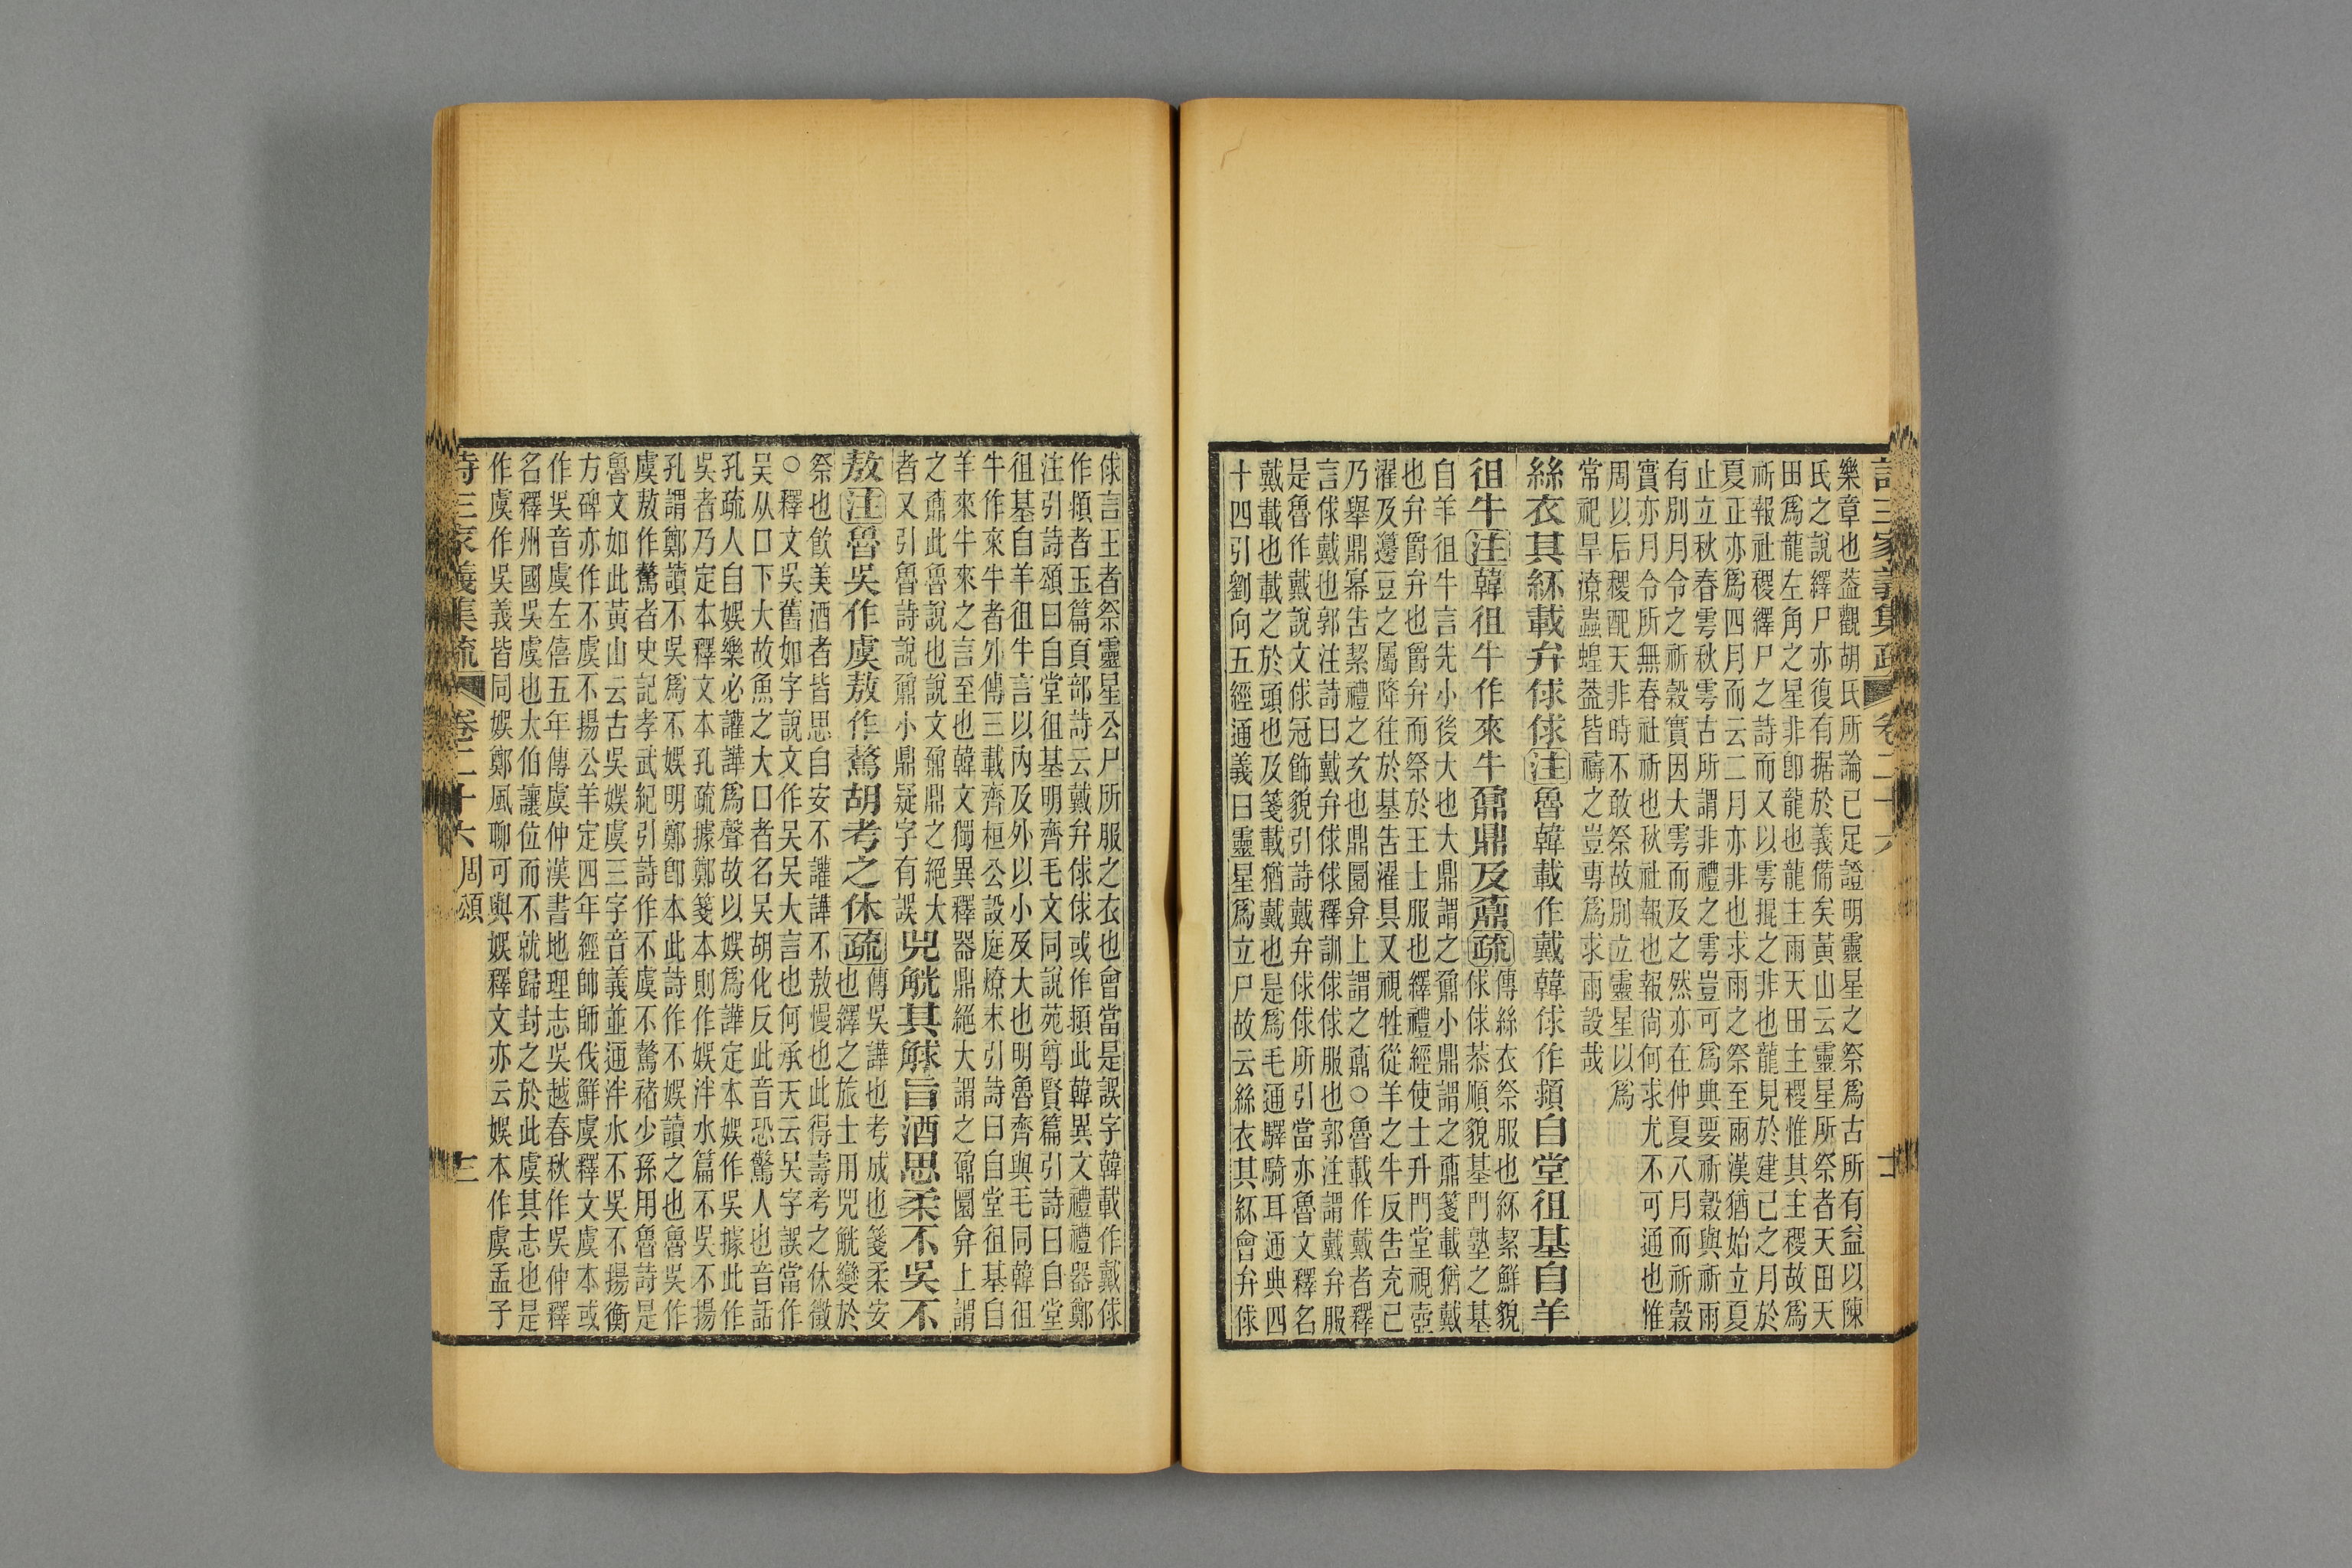 詩三家義集疏 卷二十六
樂章也葢觀胡氏所論已足證明靈星之祭爲古所有益以陳
氏之說繹尸亦復有据於義備矣黃山云靈星所祭者天田天
田爲龍左角之星非卽龍也龍主雨天田主稷惟其主稷故爲
祈報社稷繹尸之詩而又以雩掍之非也龍見於建巳之月於
夏正亦爲四月而云二月亦非也求雨之祭至兩漢猶始立夏
止立秋春雩秋雩古所謂非禮之雩豈可爲典要祈穀與祈雨
有別月令之祈穀實因大雩而及之然亦在仲夏八月而祈穀
實亦月令所無春社祈也秋社報也報尙何求尤不可通也惟
周以后稷配天非時不敢祭故別立靈星以爲
常祀旱潦蟲蝗葢皆禱之豈專爲求雨設哉
絲衣其紑載弁俅俅注魯韓載作戴韓俅作䫔自堂徂基自羊
徂牛注韓徂牛作來牛鼐鼎及鼒疏傳絲衣祭服也紑絜鮮貌
俅俅恭順貌基門塾之基
自羊徂牛言先小後大也大鼎謂之鼐小鼎謂之鼒箋載猶戴
也弁爵弁也爵弁而祭於王士服也繹禮經使士升門堂視壺
濯及籩豆之屬降往於基告濯具又視牲從羊之牛反告充已
乃舉鼎冪告絜禮之次也鼎圜弇上謂之鼒○魯載作戴者釋
言俅戴也郭注詩曰戴弁俅俅釋訓俅俅服也郭注謂戴弁服
是魯作戴說文俅冠飾貌引詩戴弁俅俅所引當亦魯文釋名
戴載也載之於頭也及箋載猶戴也是爲毛通驛騎耳通典四
十四引劉向五經通義曰靈星爲立尸故云絲衣其紑會弁俅
俅言王者祭靈星公尸所服之衣也會當是誤字韓載作戴俅
作䫔者玉篇頁部詩云戴弁俅俅或作䫔此韓異文禮禮器鄭
注引詩頌曰自堂徂基明齊毛文同說苑尊賢篇引詩曰自堂
徂基自羊徂牛言以內及外以小及大也明魯齊與毛同韓徂
牛作來牛者外傳三載齊桓公設庭燎末引詩曰自堂徂基自
羊來牛來之言至也韓文獨異釋器鼎絕大謂之鼐圜弇上謂
之鼒此魯說也說文鼐鼎之絕大
者又引魯詩說鼐小鼎疑字有誤兕觥其觩旨酒思柔不吳不
敖注魯吳作虞敖作驁胡考之休疏傳吳譁也考成也箋柔安
也繹之旅士用兕觥變於
祭也飮美酒者皆思自安不讙譁不敖慢也此得壽考之休徵
○釋文吳舊如字說文作吳吳大言也何承天云吳字誤當作
吴从口下大故魚之大口者名吴胡化反此音恐驚人也音話
孔疏人自娛樂必讙譁爲聲故以娛爲譁定本娛作吳據此作
吳者乃定本釋文本孔疏據鄭箋本則作娛泮水篇不吳不揚
孔謂鄭讀不吳爲不娛明鄭卽本此詩作不娛讀之也魯吳作
虞敖作驁者史記孝武紀引詩作不虞不驁褚少孫用魯詩是
魯文如此黃山云古吳娛虞三字音義並通泮水不吳不揚衡
方碑亦作不虞不揚公羊定四年經帥師伐鮮虞釋文虞本或
作吳音虞左僖五年傳虞仲漢書地理志吳越春秋作吳仲釋
名釋州國吳虞也太伯讓位而不就歸封之於此虞其志也是
作虞作吳義皆同娛鄭風聊可與娛釋文亦云娛本作虞孟子
詩三家義集疏 卷二十六 周頌 三